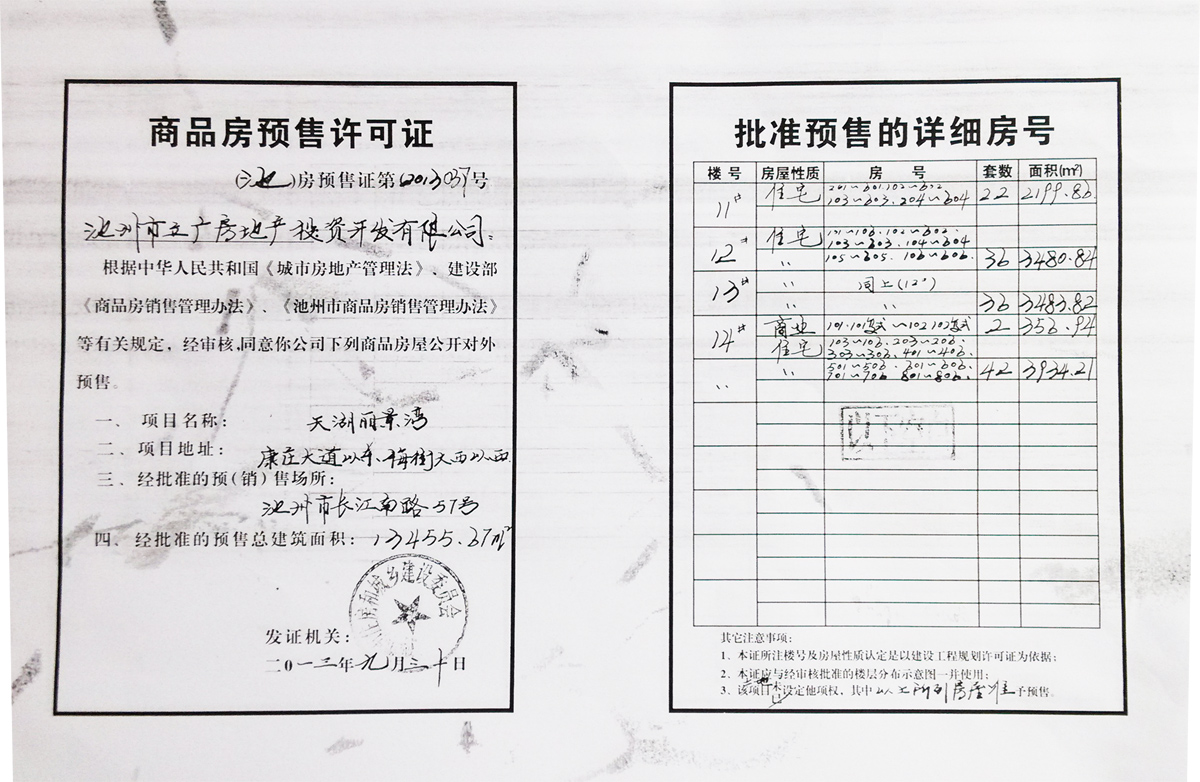 商品房预售许可证
(池)房预售证第(2013)037号
池州市立广房地产投资开发有限公司:
根据中华人民共和国《城市房地产管理法》、建设部
《商品房销售管理办法》、《池州市商品房销售管理办法》
等有关规定,经审核,同意你公司下列商品房屋公开对外
预售。
一、项目名称: 天湖丽景湾
二、项目地址: 康庄大道以东、梅街路以西
三、经批准的预(销)售场所:
池州市长江南路57号
四、经批准的预售总建筑面积:13455.37m²
城乡建设委员会
发证机关:
二0一三年九月三十日
批准预售的详细房号
楼号 房屋性质 房号 套数 面积(m²)
11# 住宅 201~601.102~602. 103~603.204~604 22 2199.86
12# 住宅 101~106.102~602. 103~603.104~604
〃 105~605.106~606. 36 3480.84
13# 〃 同上(12#)
〃 〃 36 3483.82
14# 商业 2 356.94
住宅 103~106.203~206. 303~306.401~406.
〃 〃 501~506.601~606. 701~706 801~806. 42 3934.21
其它注意事项:
1、本证所注楼号及房屋性质认定是以建设工程规划许可证为依据;
2、本证应与经审核批准的楼层分布示意图一并使用;
3、该项目未设定他项权,其中以上所列房屋准予预售。